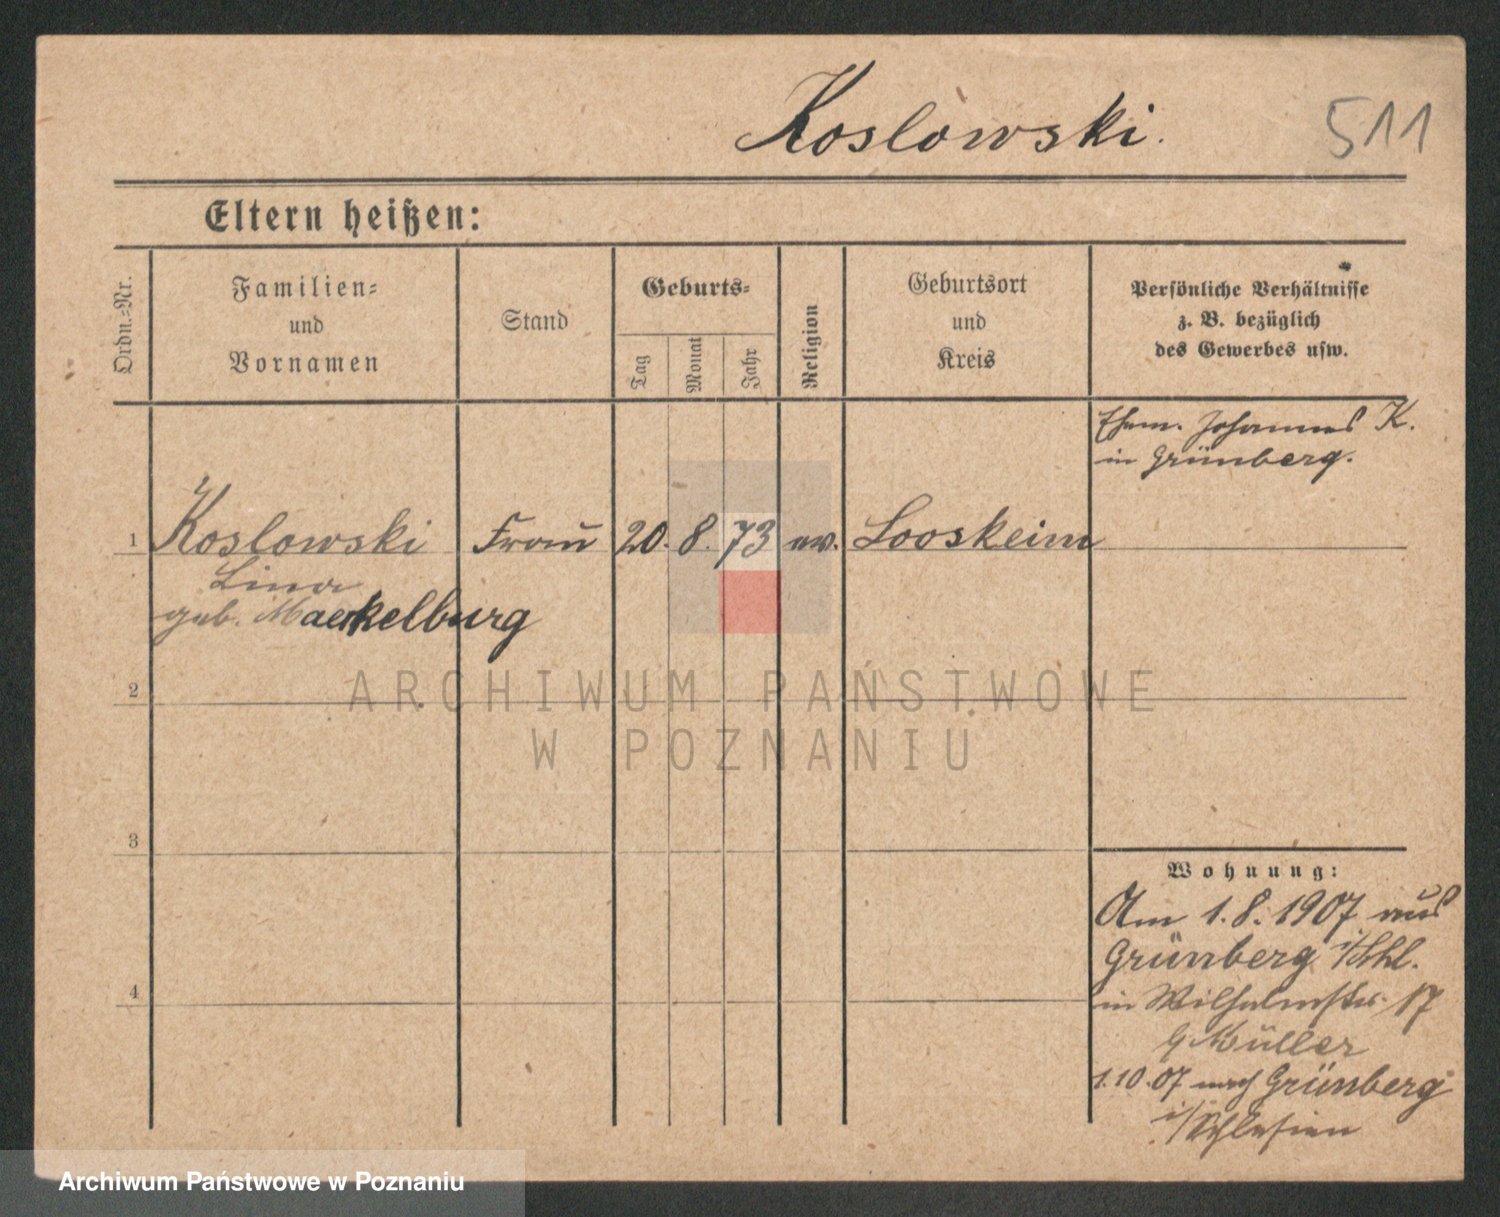 Koslowski.
511
Eltern heißen:
Ordn.-Nr.
Familien-
und
Vornamen
Stand
Geburts-
Tag
Monat
Jahr
Religion
Geburtsort
und
Kreis
Persönliche Verhältnisse
z. B. bezüglich
des Gewerbes usw.
Ehem. Johannes K.
in Grünberg.
1 Koslowski Frau 20. 8. 73 ev. Looskeim
Lina
geb. Maerkelburg
2
ARCHIWUM PAŃSTWOWE
W POZNANIU
3
Wohnung:
Am 1.8.1907 aus
Grünberg i/Schl.
4
in Wilhelmstr. 17
b Müller
1.10.07 nach Grünberg
i/Schlesien
Archiwum Państwowe w Poznaniu